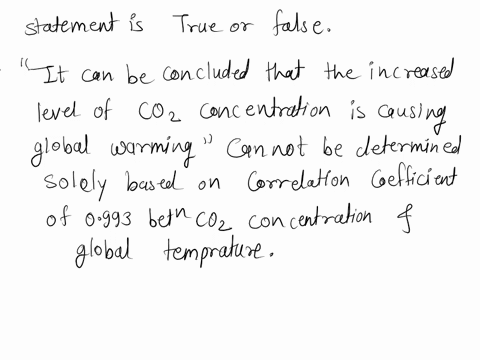 statement is True or false.
"It can be concluded that the increased
level of CO2 concentration is causing
global warming" Cannot be determined
Solely based on Correlation Coefficient
of 0.993 betn CO2 concentration &
global temprature.